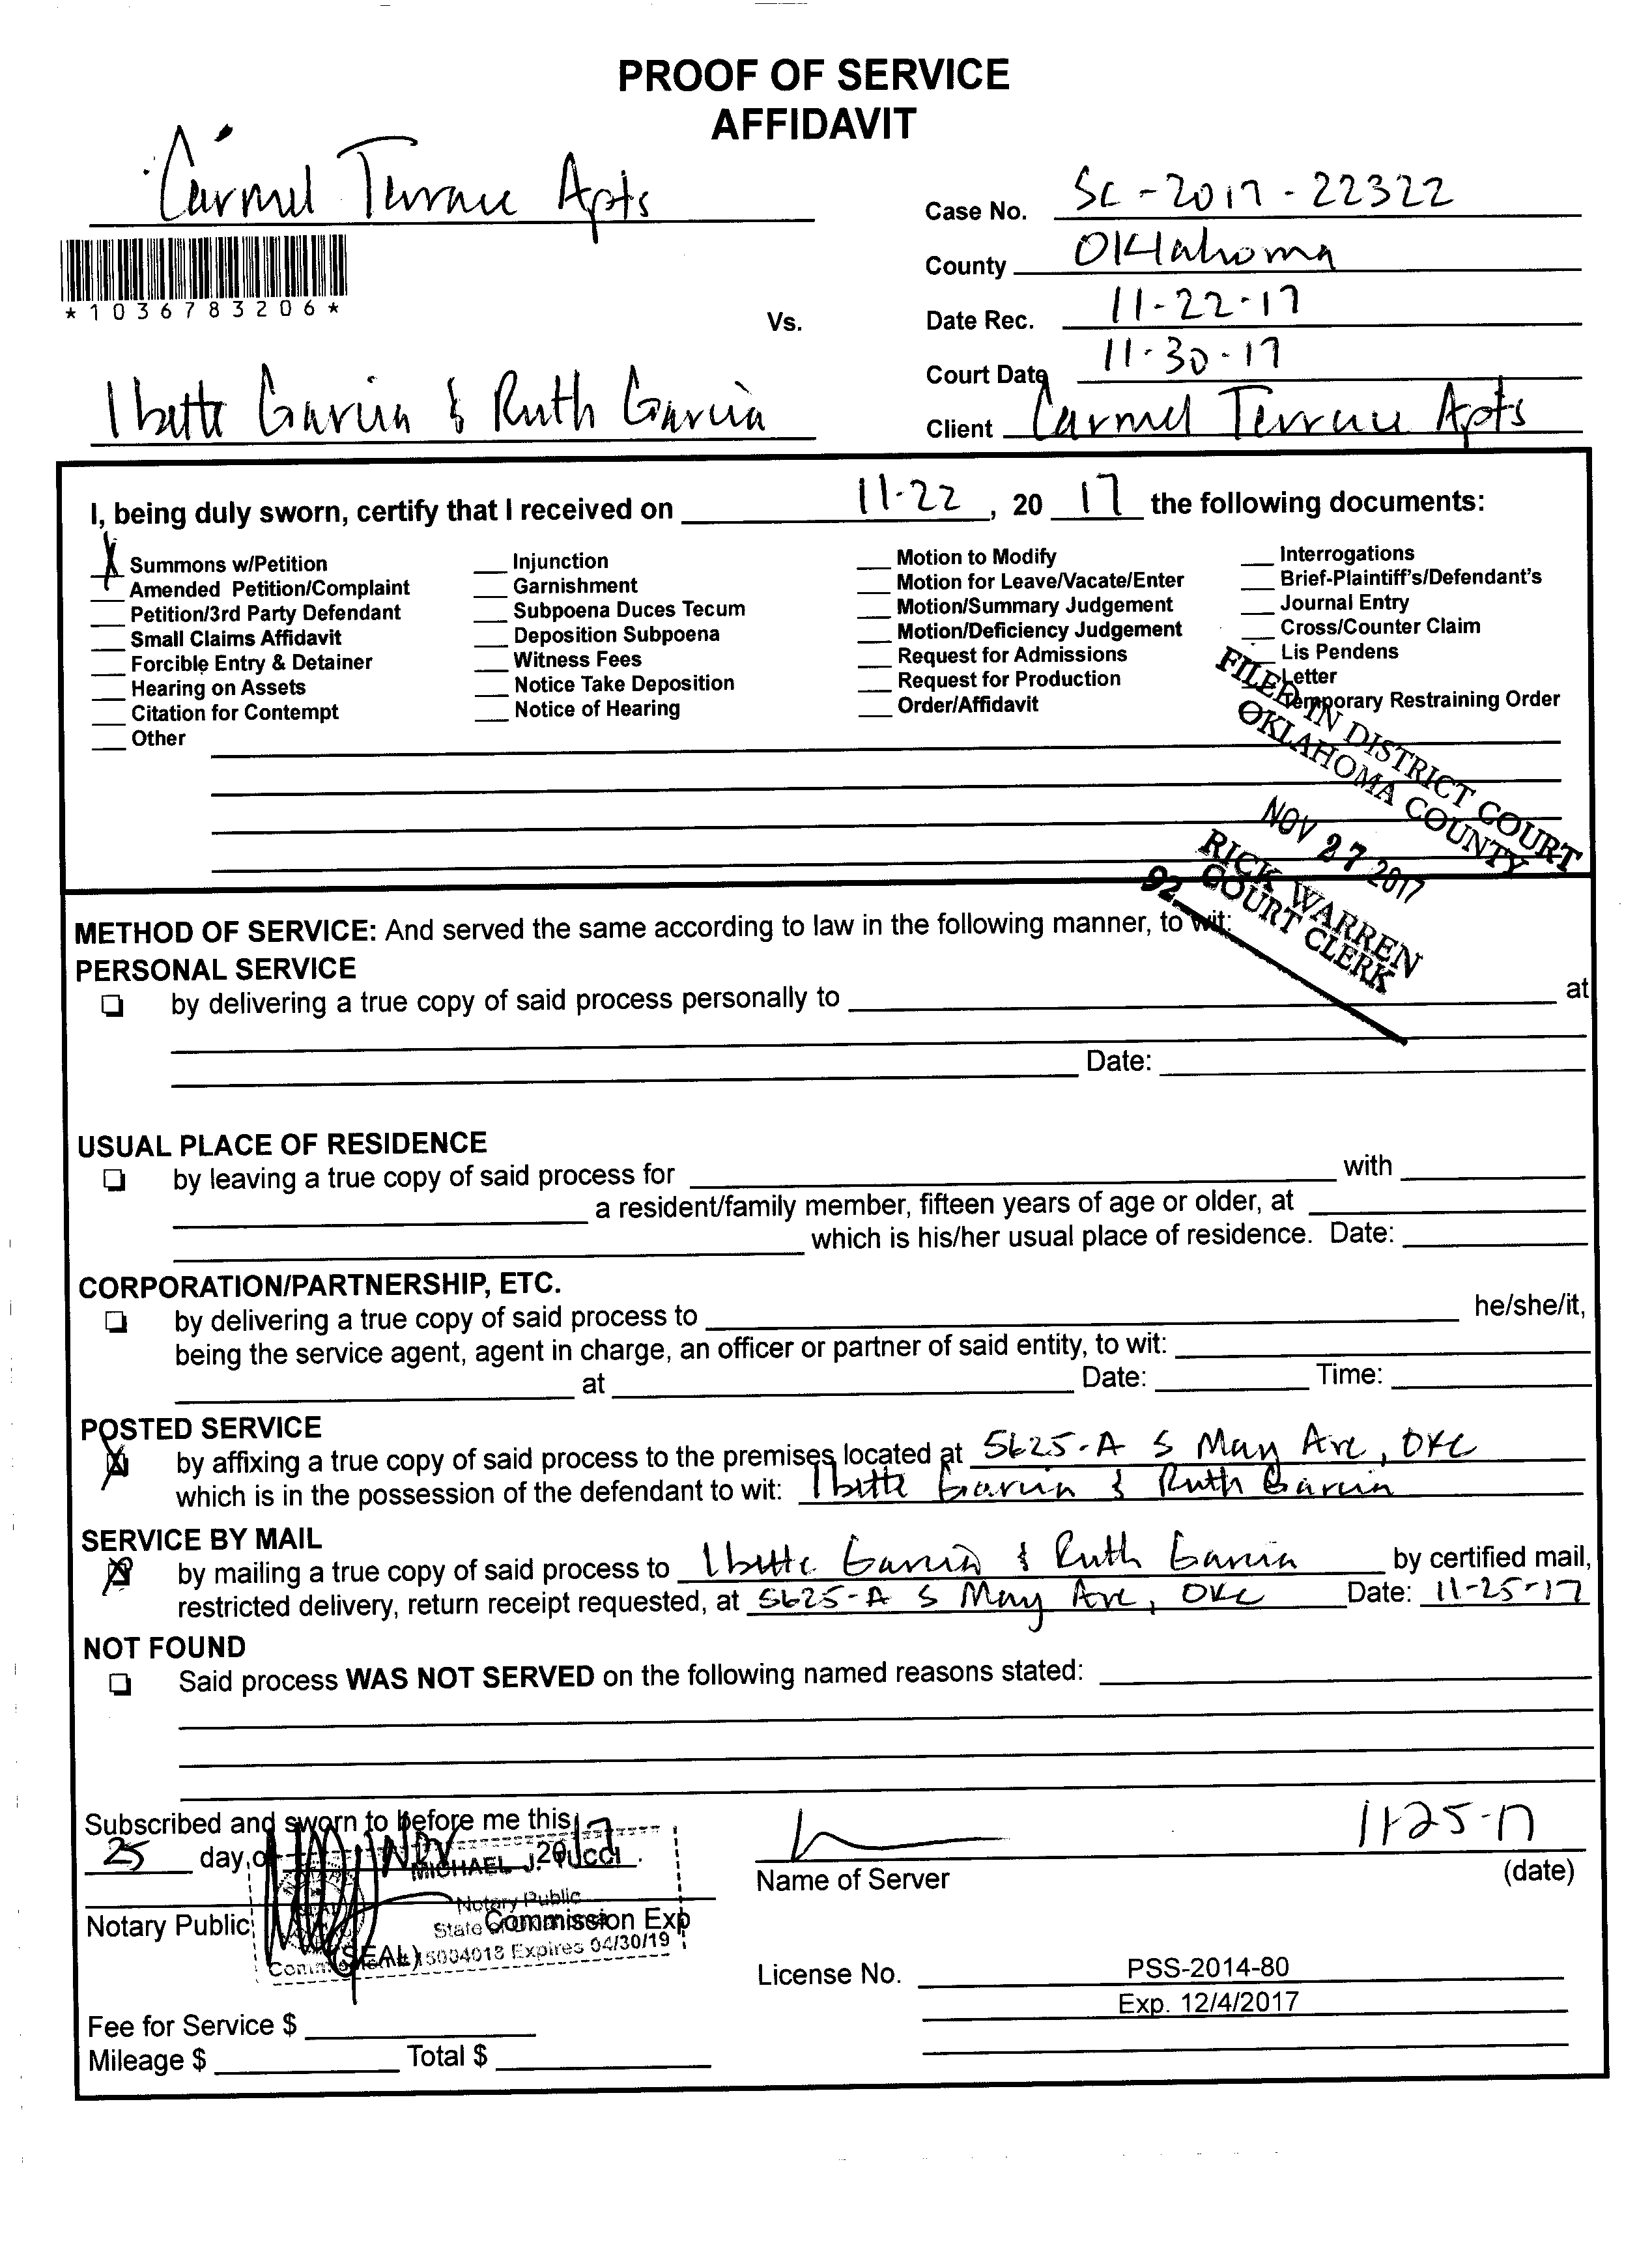 PROOF OF SERVICE
AFFIDAVIT
Carmel Terrace Apts
Case No. SC-2017-22322
*1036783206*
County Oklahoma
Vs.
Date Rec. 11-22-17
Court Date 11-30-17
Ibette Garcia & Ruth Garcia
Client Carmel Terrace Apts
I, being duly sworn, certify that I received on 11-22, 20 17 the following documents:
X Summons w/Petition
Amended Petition/Complaint
Petition/3rd Party Defendant
Small Claims Affidavit
Forcible Entry & Detainer
Hearing on Assets
Citation for Contempt
Other
Injunction
Garnishment
Subpoena Duces Tecum
Deposition Subpoena
Witness Fees
Notice Take Deposition
Notice of Hearing
Motion to Modify
Motion for Leave/Vacate/Enter
Motion/Summary Judgement
Motion/Deficiency Judgement
Request for Admissions
Request for Production
Order/Affidavit
Interrogations
Brief-Plaintiff's/Defendant's
Journal Entry
Cross/Counter Claim
Lis Pendens
Letter
Temporary Restraining Order
FILED IN DISTRICT COURT
OKLAHOMA COUNTY
NOV 27 2017
RICK WARREN
COURT CLERK
92
METHOD OF SERVICE: And served the same according to law in the following manner, to wit:
PERSONAL SERVICE
by delivering a true copy of said process personally to at
Date:
USUAL PLACE OF RESIDENCE
by leaving a true copy of said process for with
a resident/family member, fifteen years of age or older, at
which is his/her usual place of residence. Date:
CORPORATION/PARTNERSHIP, ETC.
by delivering a true copy of said process to he/she/it,
being the service agent, agent in charge, an officer or partner of said entity, to wit:
at Date: Time:
POSTED SERVICE
X by affixing a true copy of said process to the premises located at 5625-A S May Ave, OKC
which is in the possession of the defendant to wit: Ibette Garcia & Ruth Garcia
SERVICE BY MAIL
X by mailing a true copy of said process to Ibette Garcia & Ruth Garcia by certified mail,
restricted delivery, return receipt requested, at 5625-A S May Ave, OKC Date: 11-25-17
NOT FOUND
Said process WAS NOT SERVED on the following named reasons stated:
Subscribed and sworn to before me this
25 day of Nov, 2017.
MICHAEL J.
Notary Public
State of Oklahoma
15004018 Expires 04/30/19
Notary Public
Commission Exp
(SEAL)
11-25-17
Name of Server (date)
License No. PSS-2014-80
Exp. 12/4/2017
Fee for Service $
Mileage $ Total $